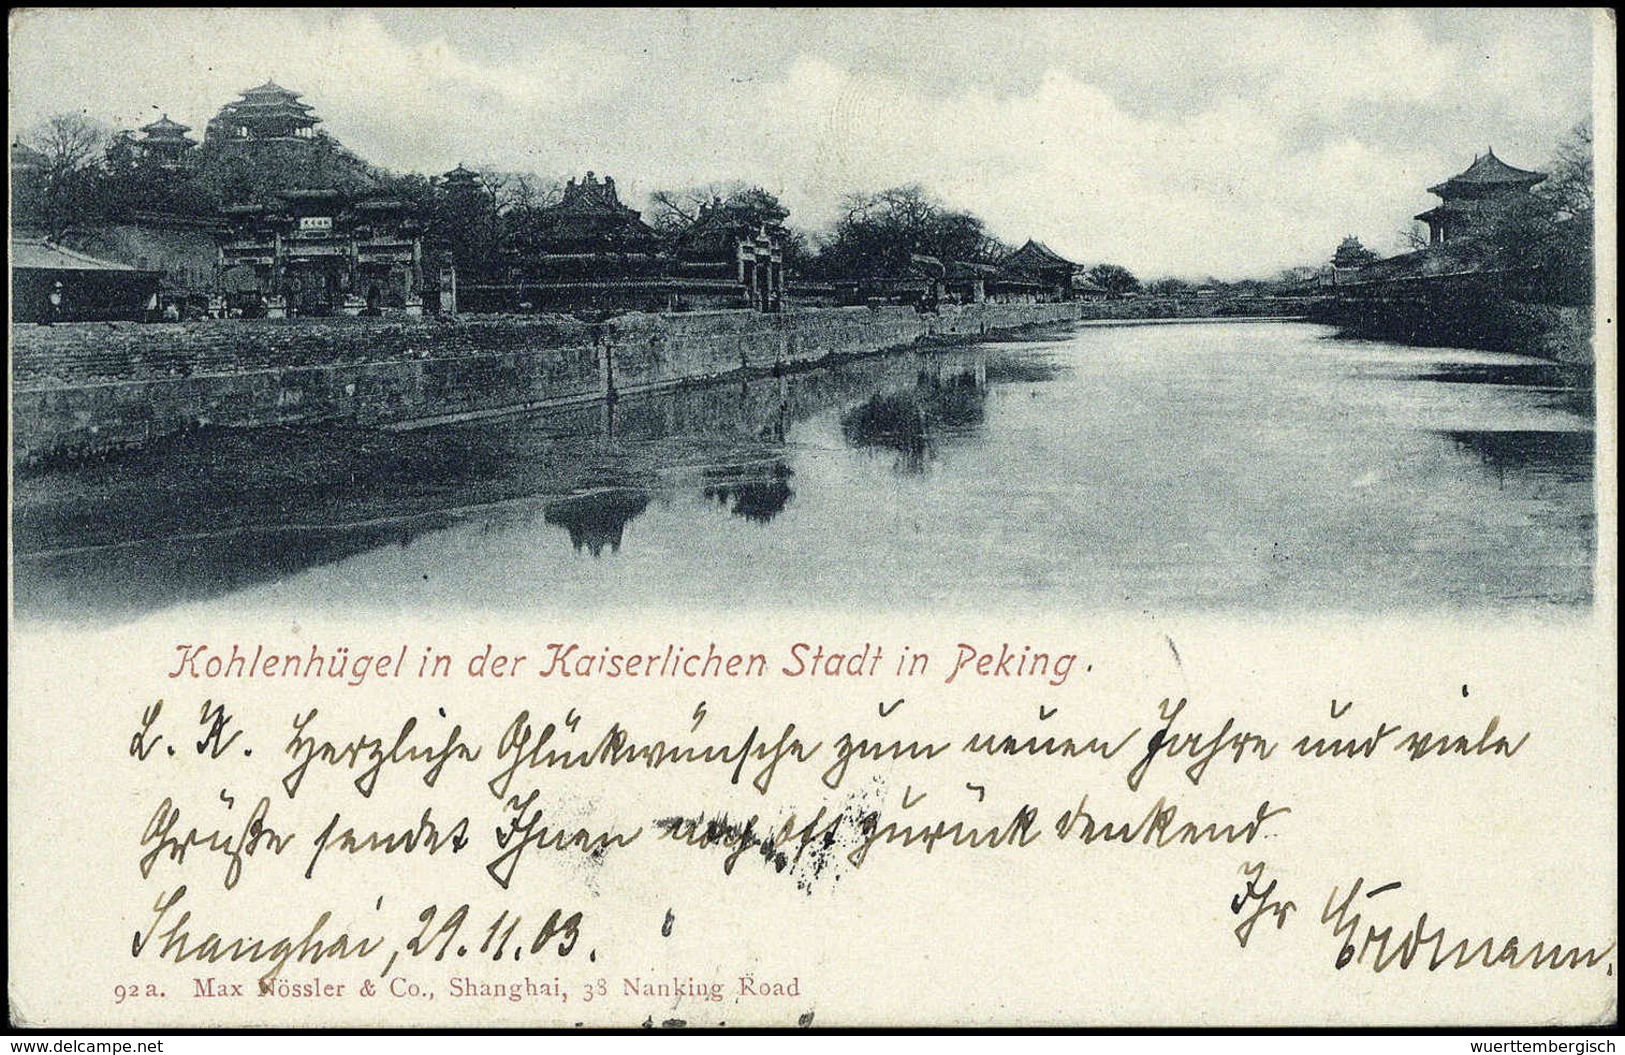 Kohlenhügel in der Kaiserlichen Stadt in Peking.
L. K. Herzliche Glückwünsche zum neuen Jahre und viele
Grüße sendet Ihnen noch oft zurück denkend
Ihr Erdmann.
Shanghai, 29.11.03.
92a. Max Nössler & Co., Shanghai, 38 Nanking Road
www.delcampe.net
wuerttembergisch